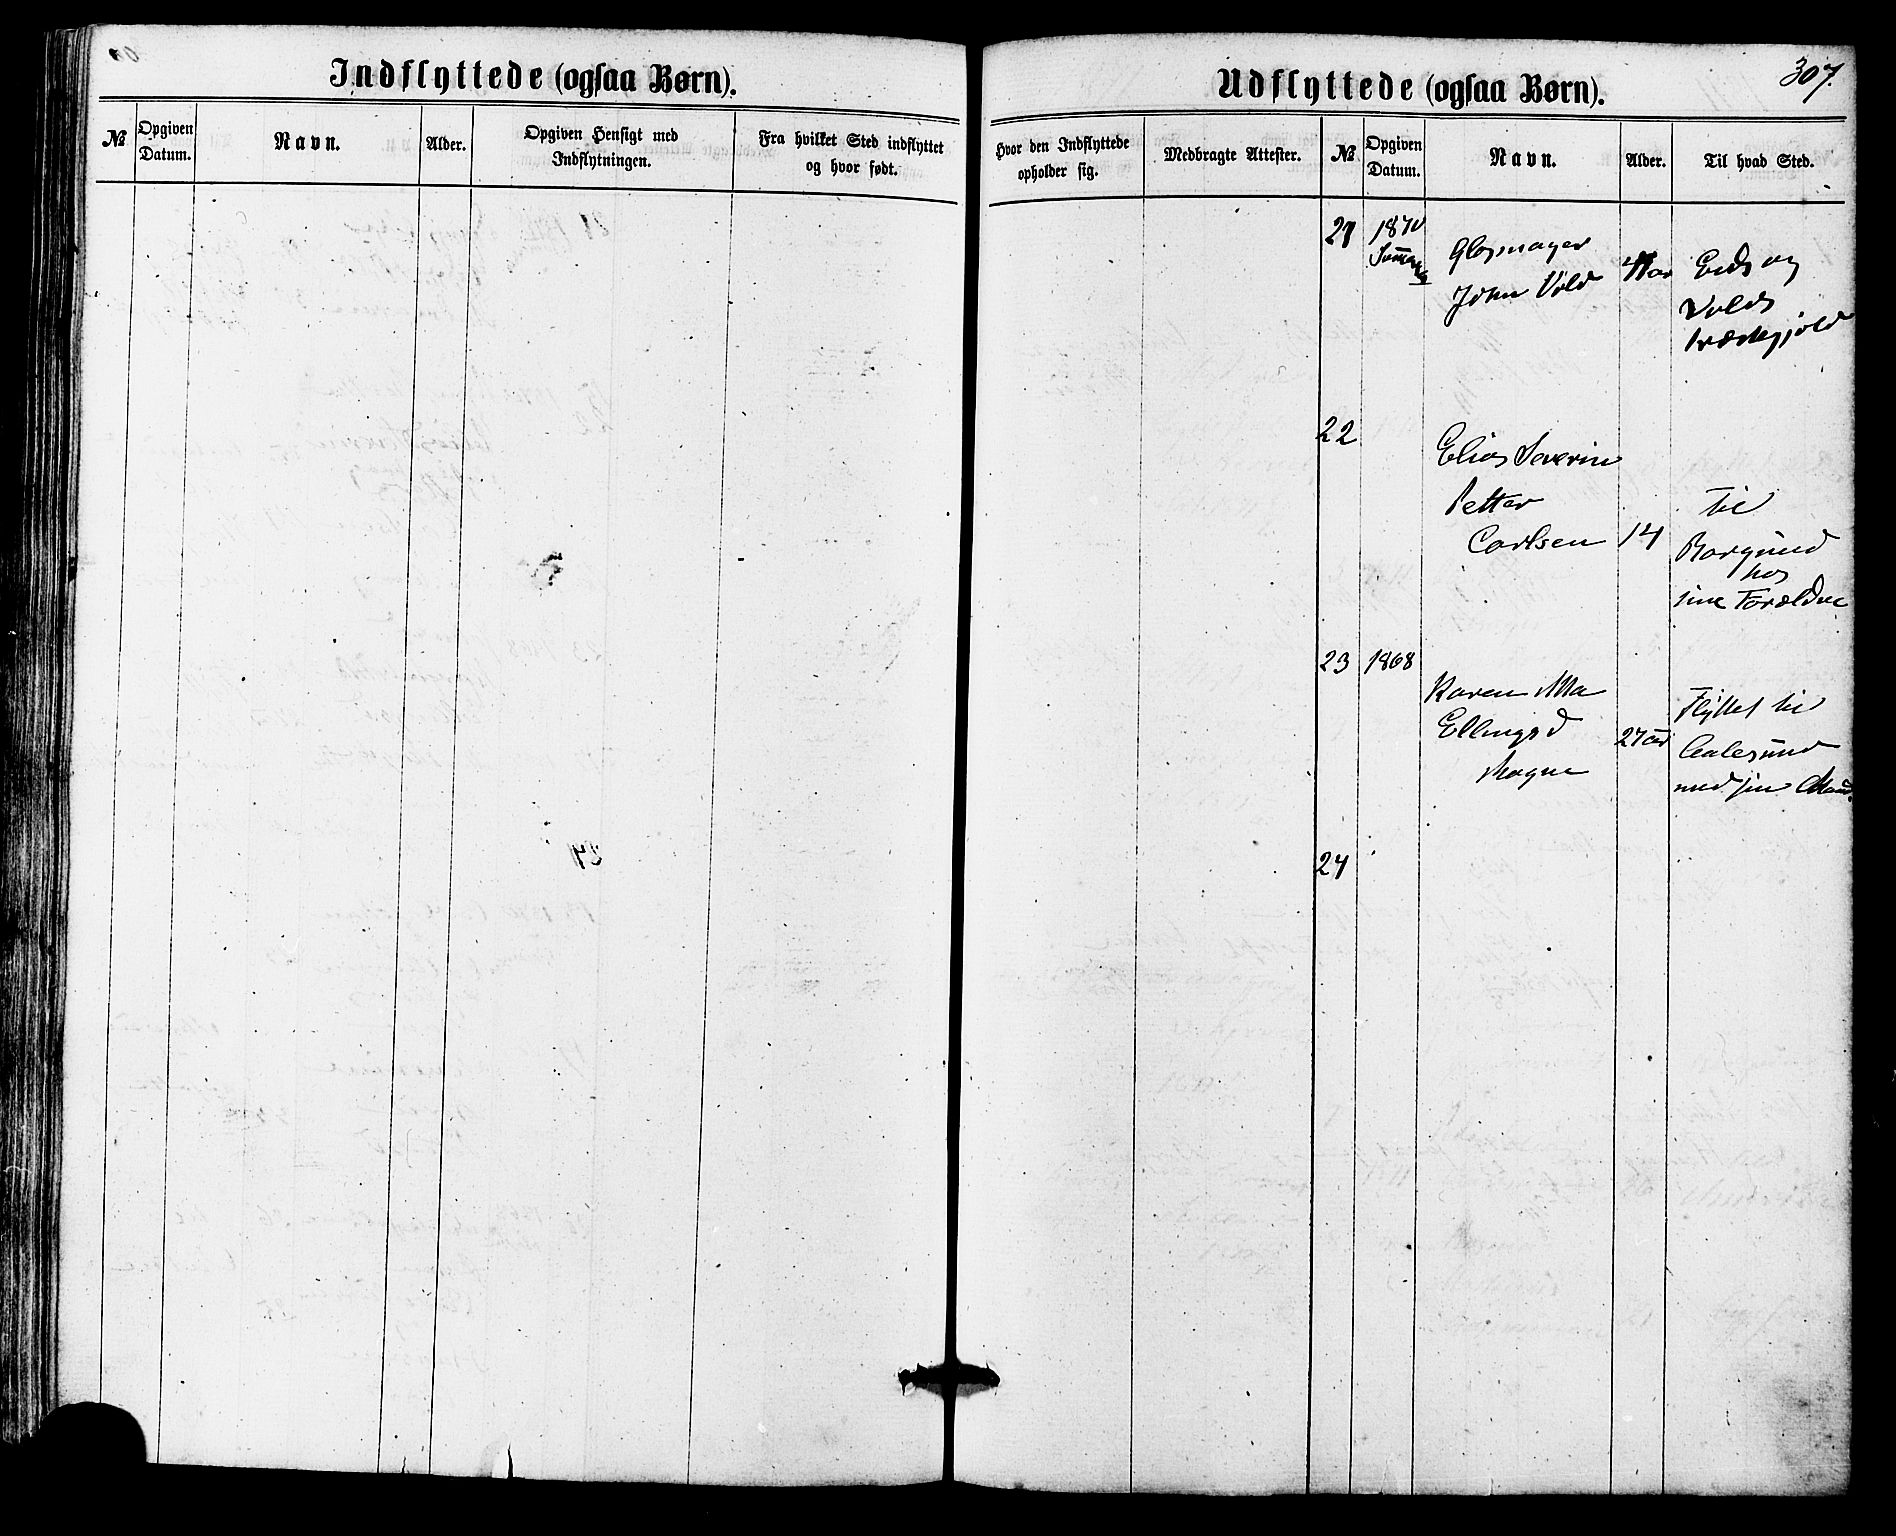 Indflyttede (ogsaa Børn).
№
Opgiven
Datum.
Navn.
Alder.
Opgiven Hensigt med
Indflytningen.
Fra hvilket Sted indflyttet
og hvor født.
307.
Udflyttede (ogsaa Børn).
Hvor den Indflyttede
opholder sig.
Medbragte Attester.
№
Opgiven
Datum.
Navn.
Alder.
Til hvad Sted.
21
1870
John Vold
Eids og
Volds
22
Elias Severin
Petter
Carlsen
14
til
Borgund
hos
sine Forældre
23
1868
Karen Ma
Ellingsd
Magne
27 aar
Flyttet til
Aalesund
med sin Mand.
24